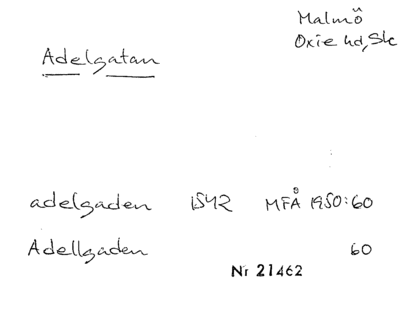 Malmö
Oxie hd, Sk
Adelgatan
adelgaden 1542 MFÅ 1950:60
Adellgaden 60
Nr 21462